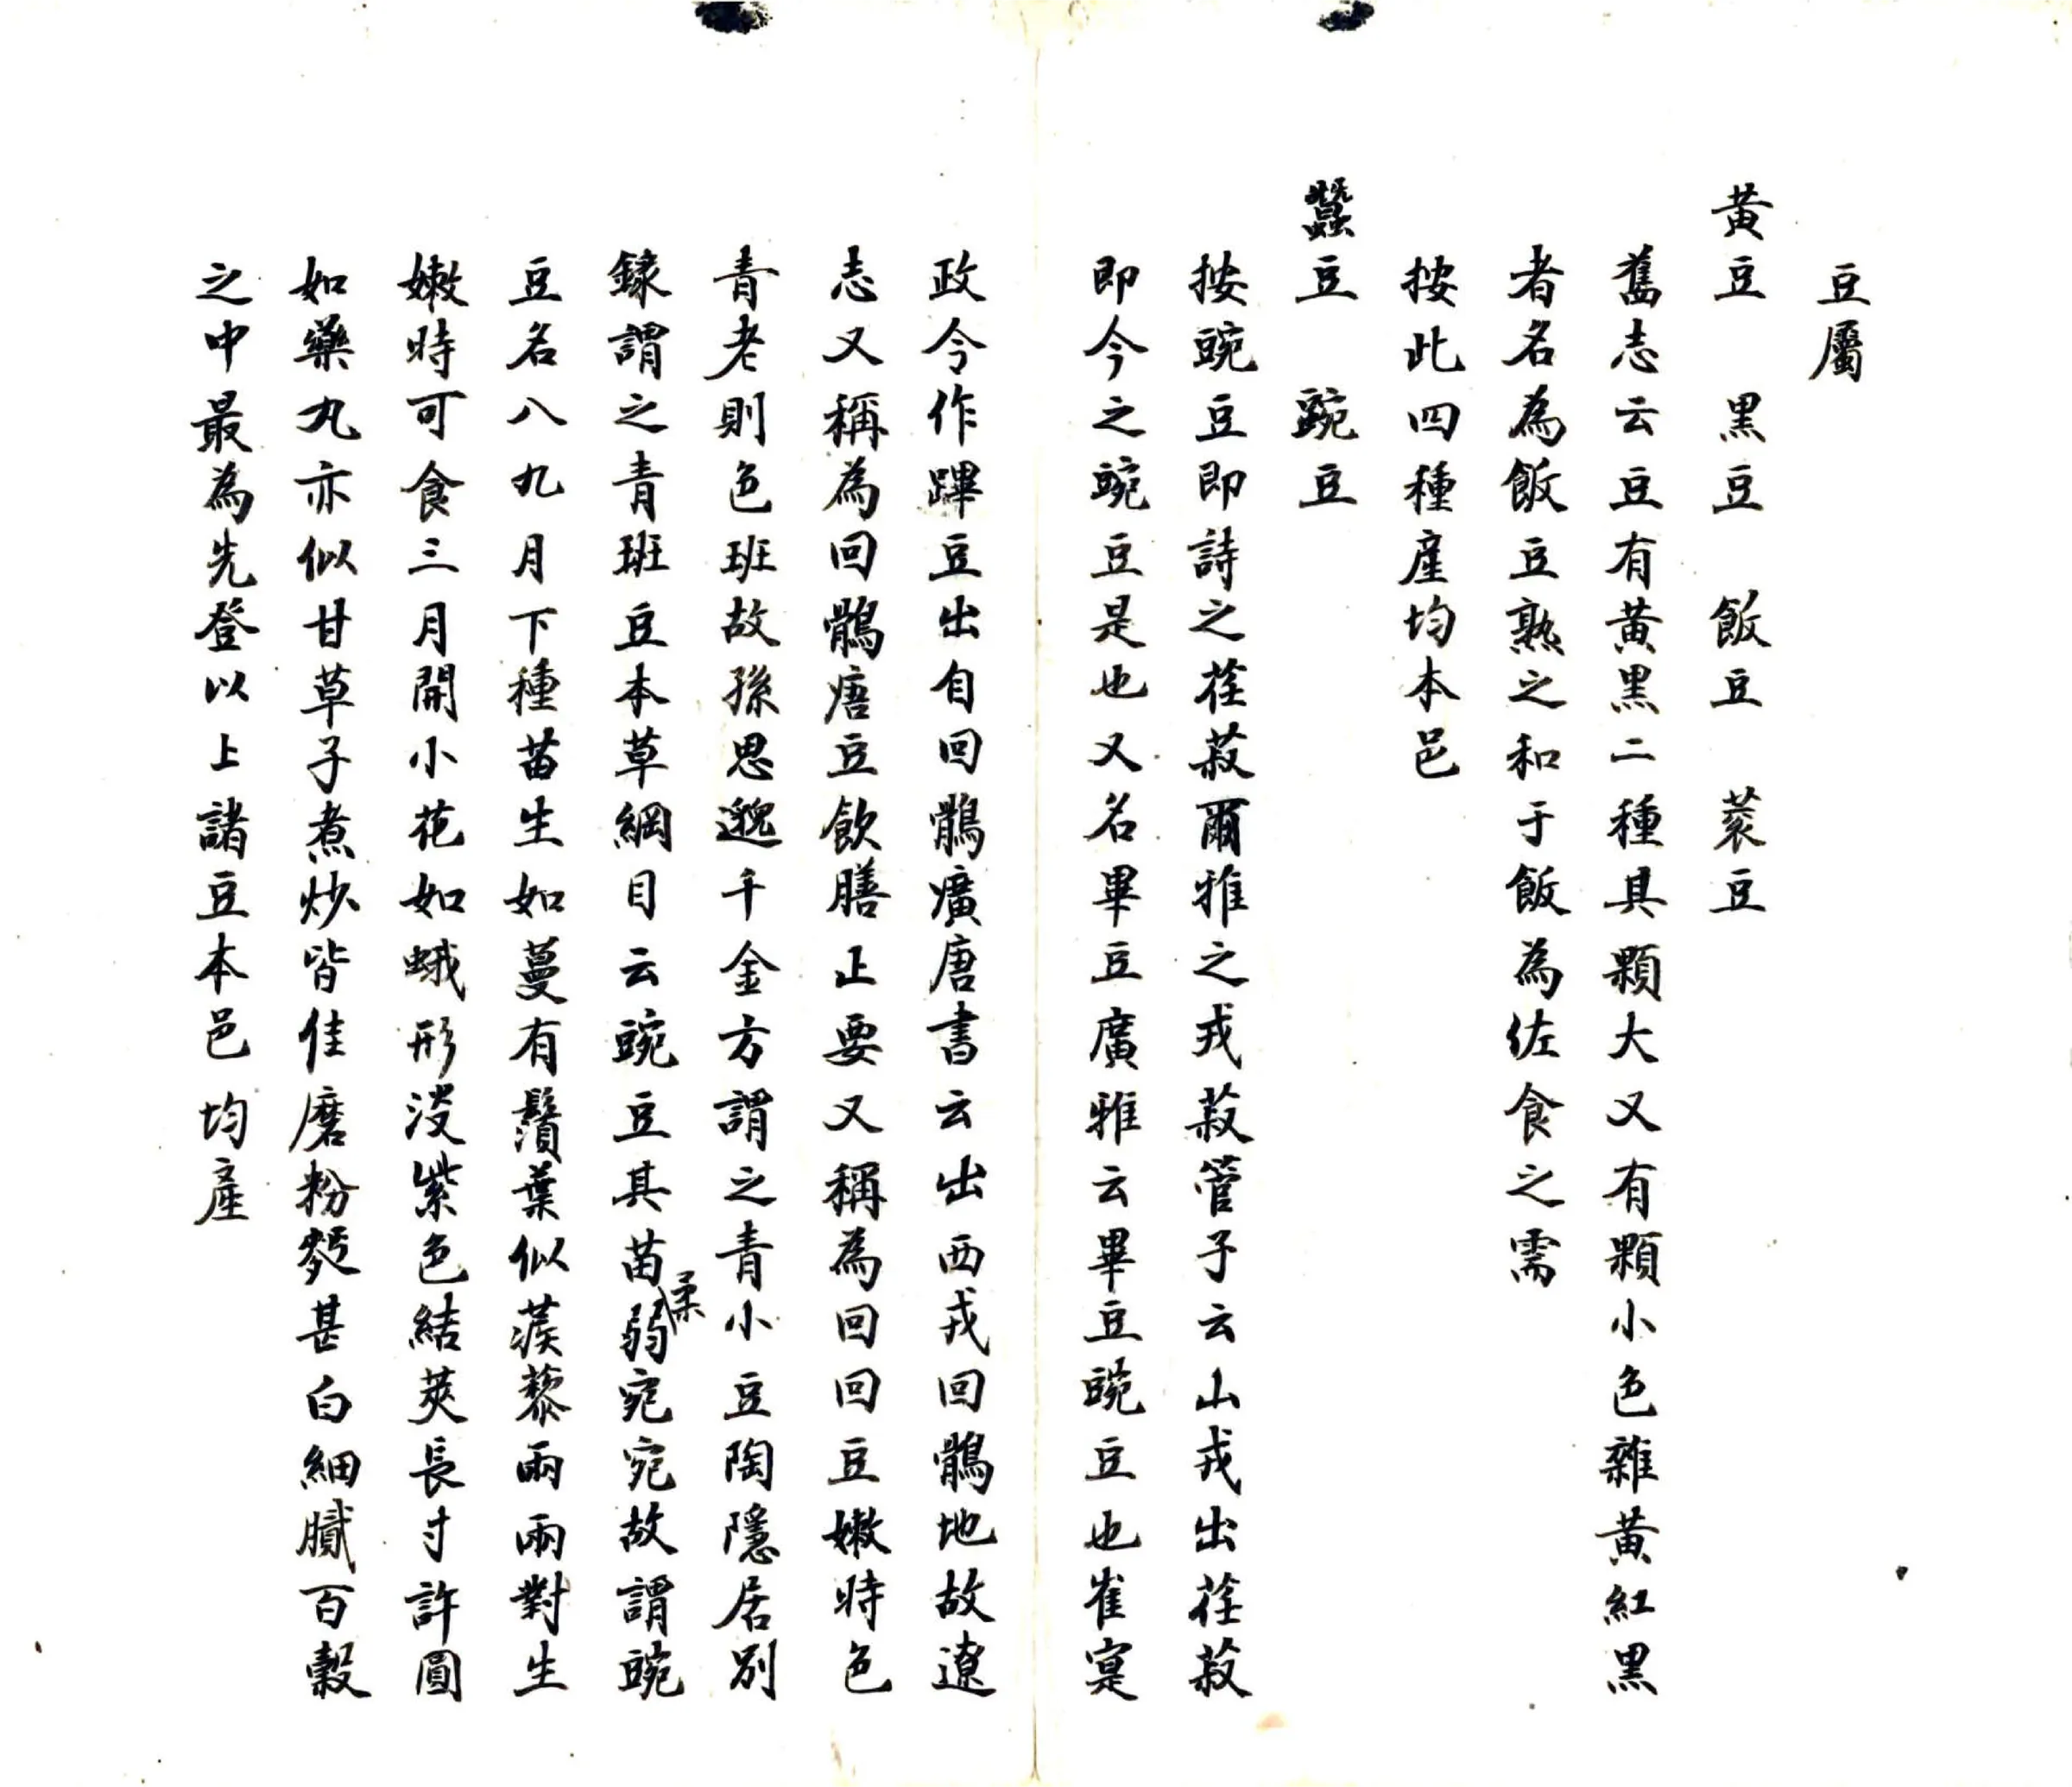 豆屬
黃豆　黑豆　飯豆　菉豆
舊志云豆有黃黑二種具顆大又有顆小色雜黃紅黑
者名為飯豆熟之和于飯為佐食之需
按此四種産均本邑
蠶豆　豌豆
按豌豆即詩之荏菽爾雅之戎菽管子云山戎出荏菽
即今之豌豆是也又名畢豆廣雅云畢豆豌豆也崔寔
政令作蹕豆出自回鶻廣唐書云出西戎回鶻地故遼
志又稱為回鶻唐豆飲膳正要又稱為回回豆嫩時色
青老則色班故孫思邈千金方謂之青小豆陶隱居別
錄謂之青班豆本草綱目云豌豆其苗柔弱宛宛故謂豌
豆名八九月下種苗生如蔓有鬚葉似蒺藜兩兩對生
嫩時可食三月開小花如蛾形淡紫色結莢長寸許圓
如藥丸亦似甘草子煮炒皆佳磨粉麪甚白細膩百穀
之中最為先登以上諸豆本邑均產